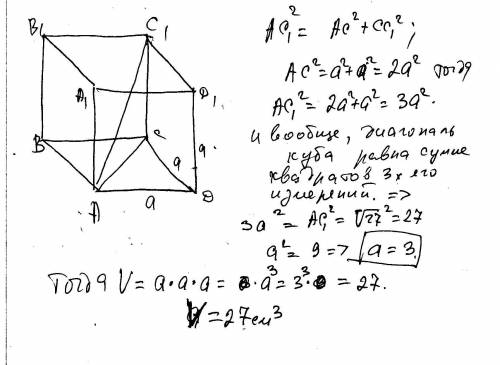 B₁ C₁
A₁ D₁
B C
A D
a
a
AC₁² = AC² + CC₁²;
AC² = a² + a² = 2a² тогда
AC₁² = 2a² + a² = 3a².
и вообще, диагональ
куба равна сумме
квадратов 3х его
измерений. =>
3a² = AC₁² = √27² = 27
a² = 9 => a = 3.
Тогда V = a·a·a = a³ = 3³ = 27.
V = 27 см³